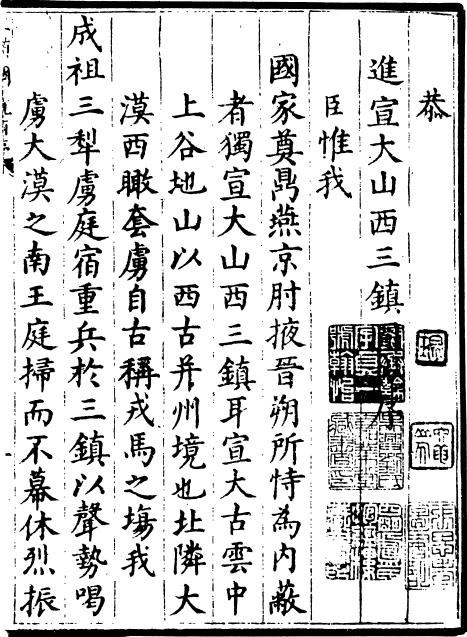 恭
進宣大山西三鎮
序
臣惟我
國家奠鼎燕京肘掖晉朔所恃為内蔽
者獨宣大山西三鎮耳宣大古雲中
上谷地山以西古并州境也北隣大
漠西瞰套虜自古稱戎馬之塲我
成祖三犁虜庭宿重兵於三鎮以聲勢喝
虜大漠之南王庭掃而不幕休烈振